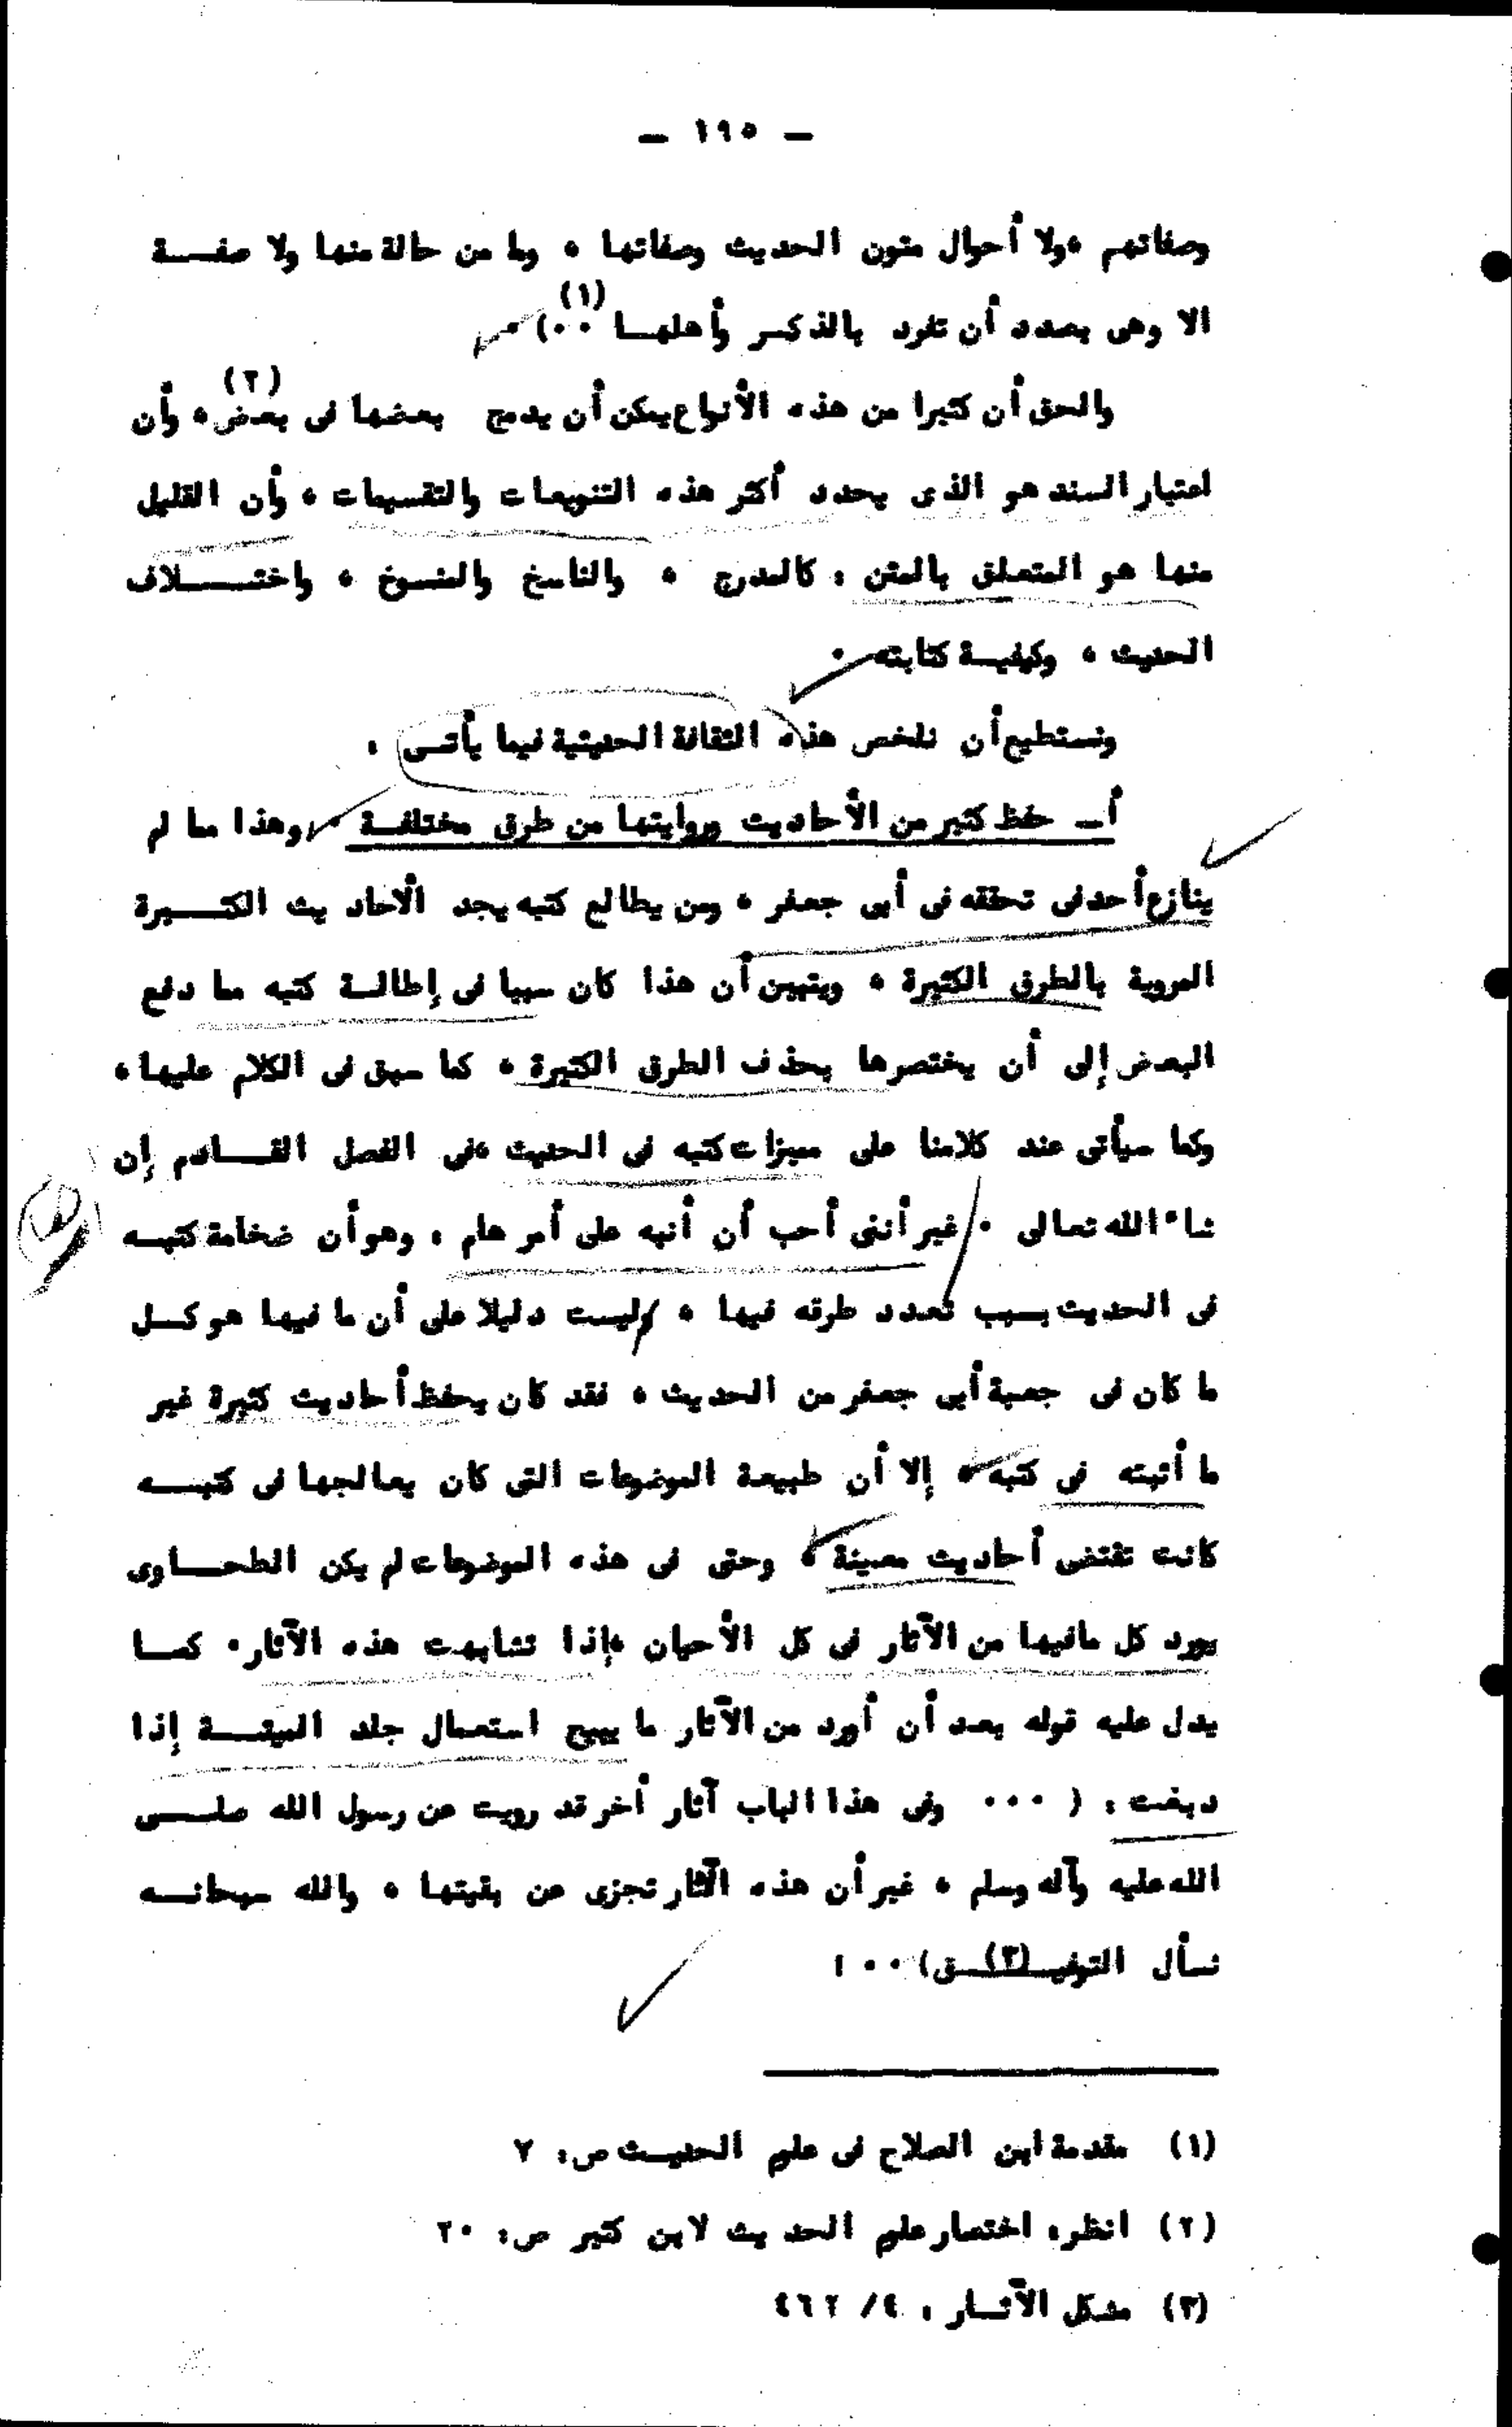 — ١٩٥ —
وصفاتهم ،ولا أحوال متون الحديث وصفاتها ، وما من حالة منها ولا صفـــة
الا وهى بصدد أن تفرد بالذكـر وأهلهـا ٠٠) (١) ٠
والحق أن كثيرا من هذه الأنواع يمكن أن يدمج بعضها فى بعض (٢) ، وأن
اعتبار السند هو الذى يحدد أكثر هذه التنويعات والتقسيمات ، وأن القليل
منها هو المتعلق بالمتن : كالمدرج ، والناسخ والمنسوخ ، واختـــلاف
الحديث ، وكيفيـة كتابته ٠
ونستطيع أن نلخص هذه الثقافة الحديثية فيما يأتـى :
أ ـ حفظ كثير من الأحاديث وروايتها من طرق مختلفـة ، وهذا ما لم
ينازع أحد فى تحققه فى أبى جعفر ، ومن يطالع كتبه يجد الأحاديث الكثـــيرة
المروية بالطرق الكثيرة ، ويتبين أن هذا كان سببا فى إطالـة كتبه مما دفع
البعض إلى أن يختصرها بحذف الطرق الكثيرة ، كما سبق فى الكلام عليها ،
وكما سيأتى عند كلامنا على مميزات كتبه فى الحديث ،فى الفصل القـــادم إن
شاء الله تعالى ٠ غير أننى أحب أن أنبه على أمر هام ، وهو أن ضخامة كتبــه
فى الحديث بسبب تعدد طرقه فيها ، ليست دليلا على أن ما فيها هو كــل
ما كان فى جعبة أبى جعفر من الحديث ، فقد كان يحفظ أحاديث كثيرة غير
ما أثبته فى كتبه ، إلا أن طبيعة الموضوعات التى كان يعالجها فى كتبـــه
كانت تقتضى أحاديث معينة ، وحتى فى هذه الموضوعات لم يكن الطحـــاوى
يورد كل مافيها من الآثار فى كل الأحيان ،إذا تشابهت هذه الآثار ٠ كمــا
يدل عليه قوله بعد أن أورد من الآثار ما يبيح استعمال جلد الميتـــة إذا
دبغت : ( ٠٠٠ وفى هذا الباب آثار أخر قد رويت عن رسول الله صلـــى
الله عليه وآله وسلم ، غير أن هذه الآثار تجزى عن بقيتها ، والله سبحانـــه
نسأل التوفيـ(٣)ـق) ٠٠ !
(١) مقدمة ابن الصلاح فى علوم الحديـث ص: ٧
(٢) انظر: اختصار علوم الحديث لابن كثير ص: ٢٠
(٣) مشكل الآثـــار : ٤/ ٤٦٢